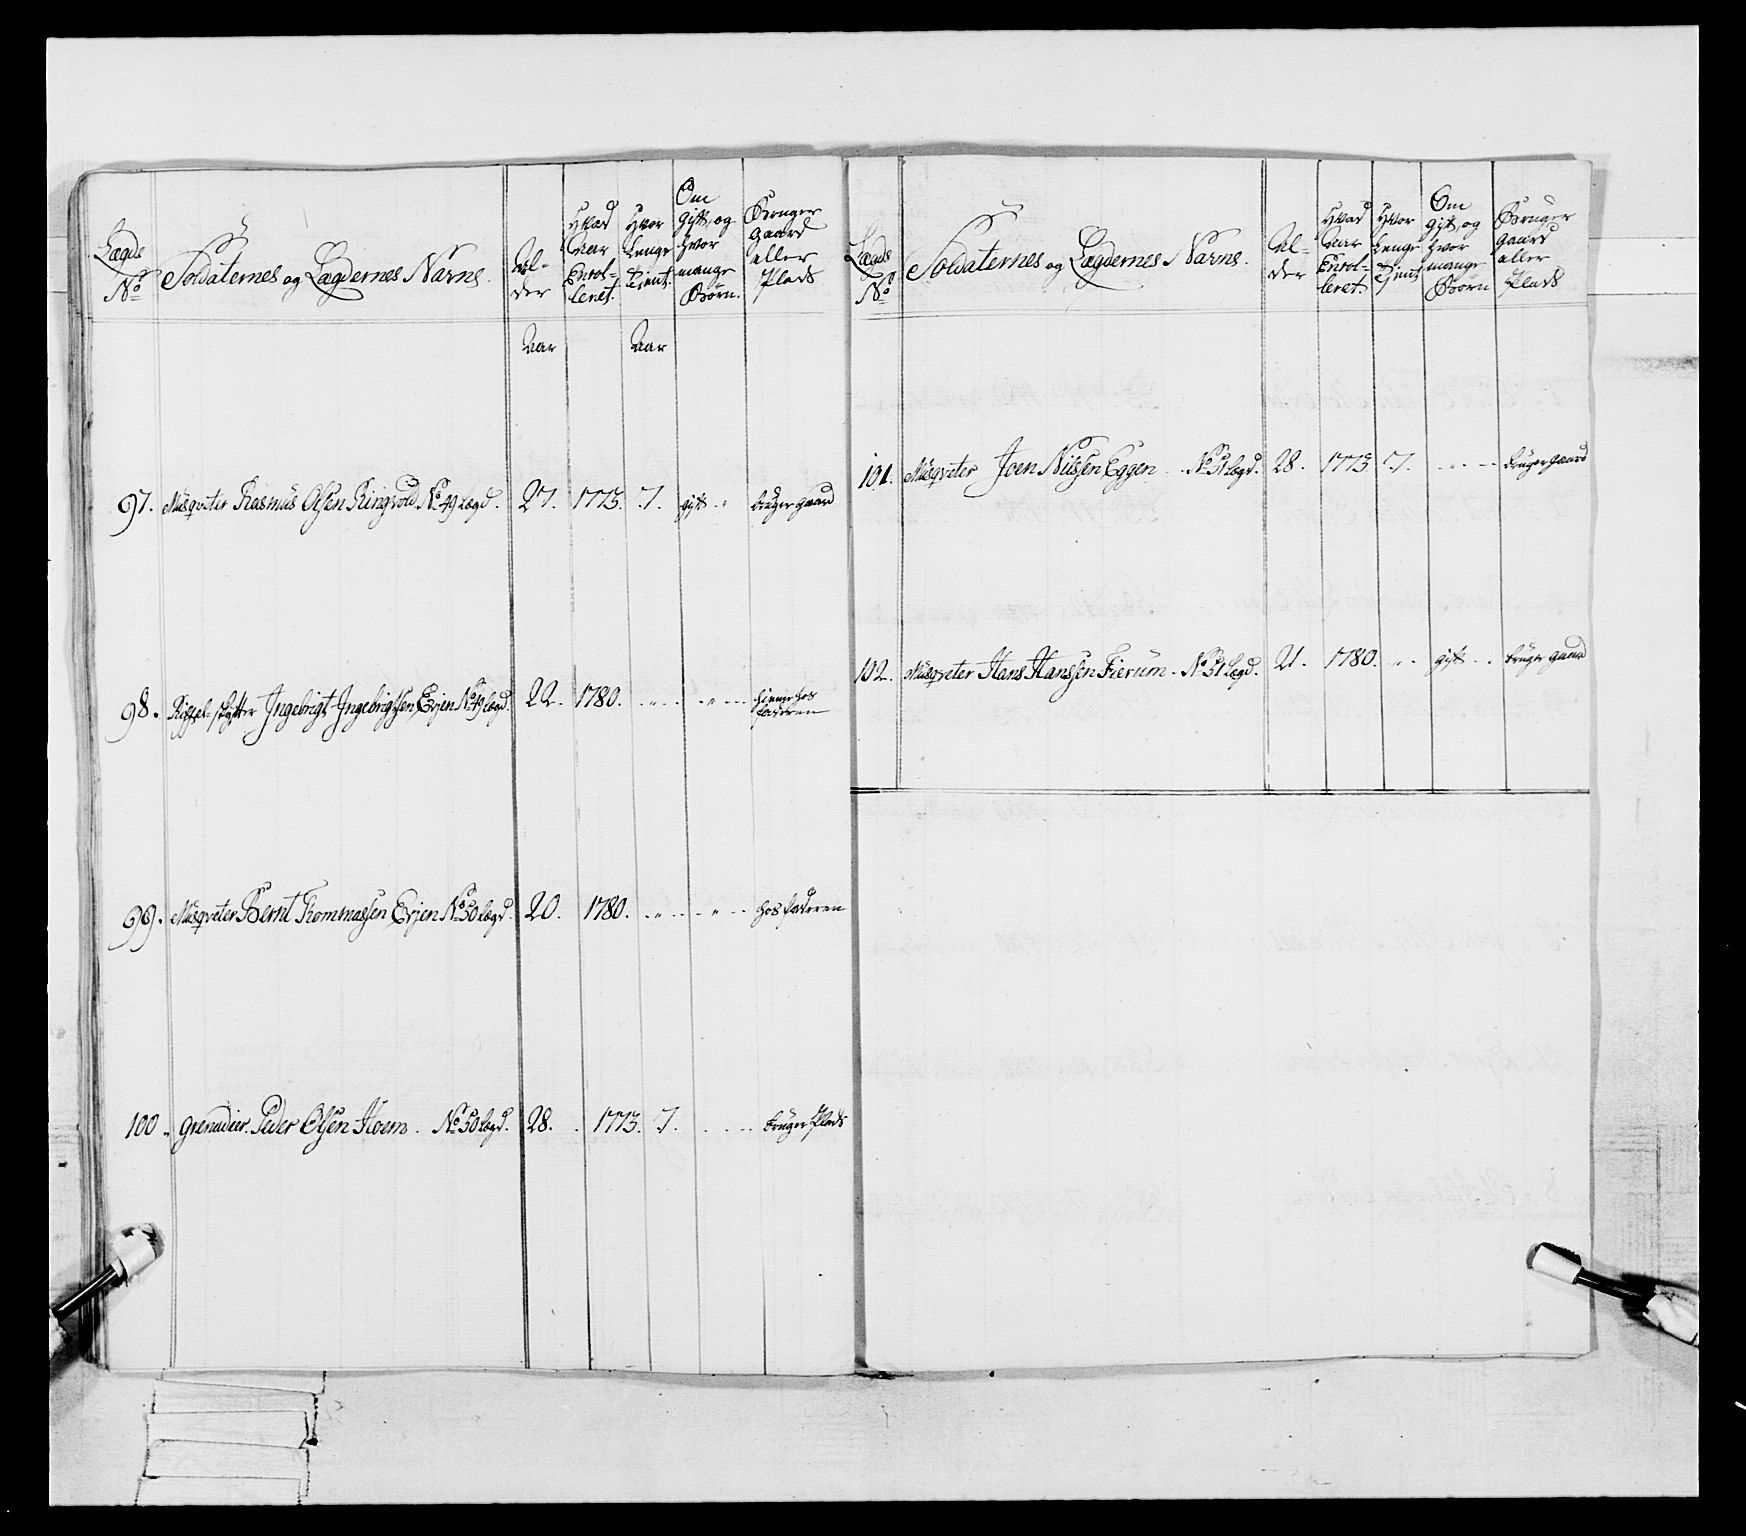 Lægds No
Soldaternes og Lægdernes Navne.
Al-
der
Hvad
Aar
Enrol-
leret.
Hvor
Lenge
Tient.
Om
gift, og
hvor
mange
Børn.
Bruger
gaard
eller
Plads
Aar
Aar
97. Musqveter Rasmus Olsen Ringvold No 49 Lægd. 27. 1773. 7. gift - " bruger gaard
98. Riffel-skytter Ingebrigt Ingebrigtsen Erjen No 49 Lægd. 22. 1780. - " - - - " - - hieme hos
faderen
99. Musqveter Bernt Thommassen Erjen No 50 Lægd. 20. 1780. - " - - - " - - hos faderen
100. Grenadier. Peder Olsen Hoem. No 50 Lægd. 28. 1773. 7. - - - - bruger Plads
Lægds
No
Soldaternes og Lægdernes Navne.
Al-
der
Hvad
Aar
Enrol-
leret.
Hvor
Lenge
Tjent
Om
gift, og
hvor
mange
Børn
Bruger
gaard
eller
Plads
101. Musqveter Joen Nilssen Eggen - No 51 Lægd. 28. 1773 7. - " - - bruger gaard
102. Musqveter Hans Hanssen Fierum - No 51 Lægd. 21. 1780. - - gift - - bruger gaard